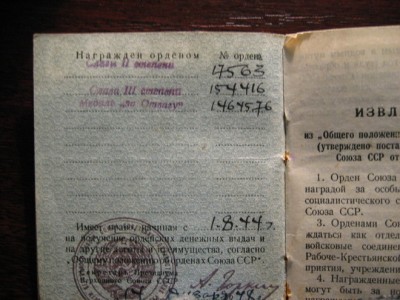 Награжден орденом № ордена
Славы II степени 17563
Слава III степени 154416
Медаль „За Отвагу" 1464576
Имеет право, начиная с 1.8.44 г.
на получение орденских денежных выдач и
на другие льготы и преимущества, согласно
„Общему положению об орденах Союза ССР"
Секретарь Президиума
Верховного Совета СССР
ИЗВЛ
из „Общего положен
(утверждено поста
Союза ССР от
1. Орден Союза
наградой за особы
социалистического с
Союза ССР.
3. Орденами Союз
ждаться как отдел
войсковые соединен
Рабоче-Крестьянской
приятия, учреждени
4. Награжденные
могут быть за н